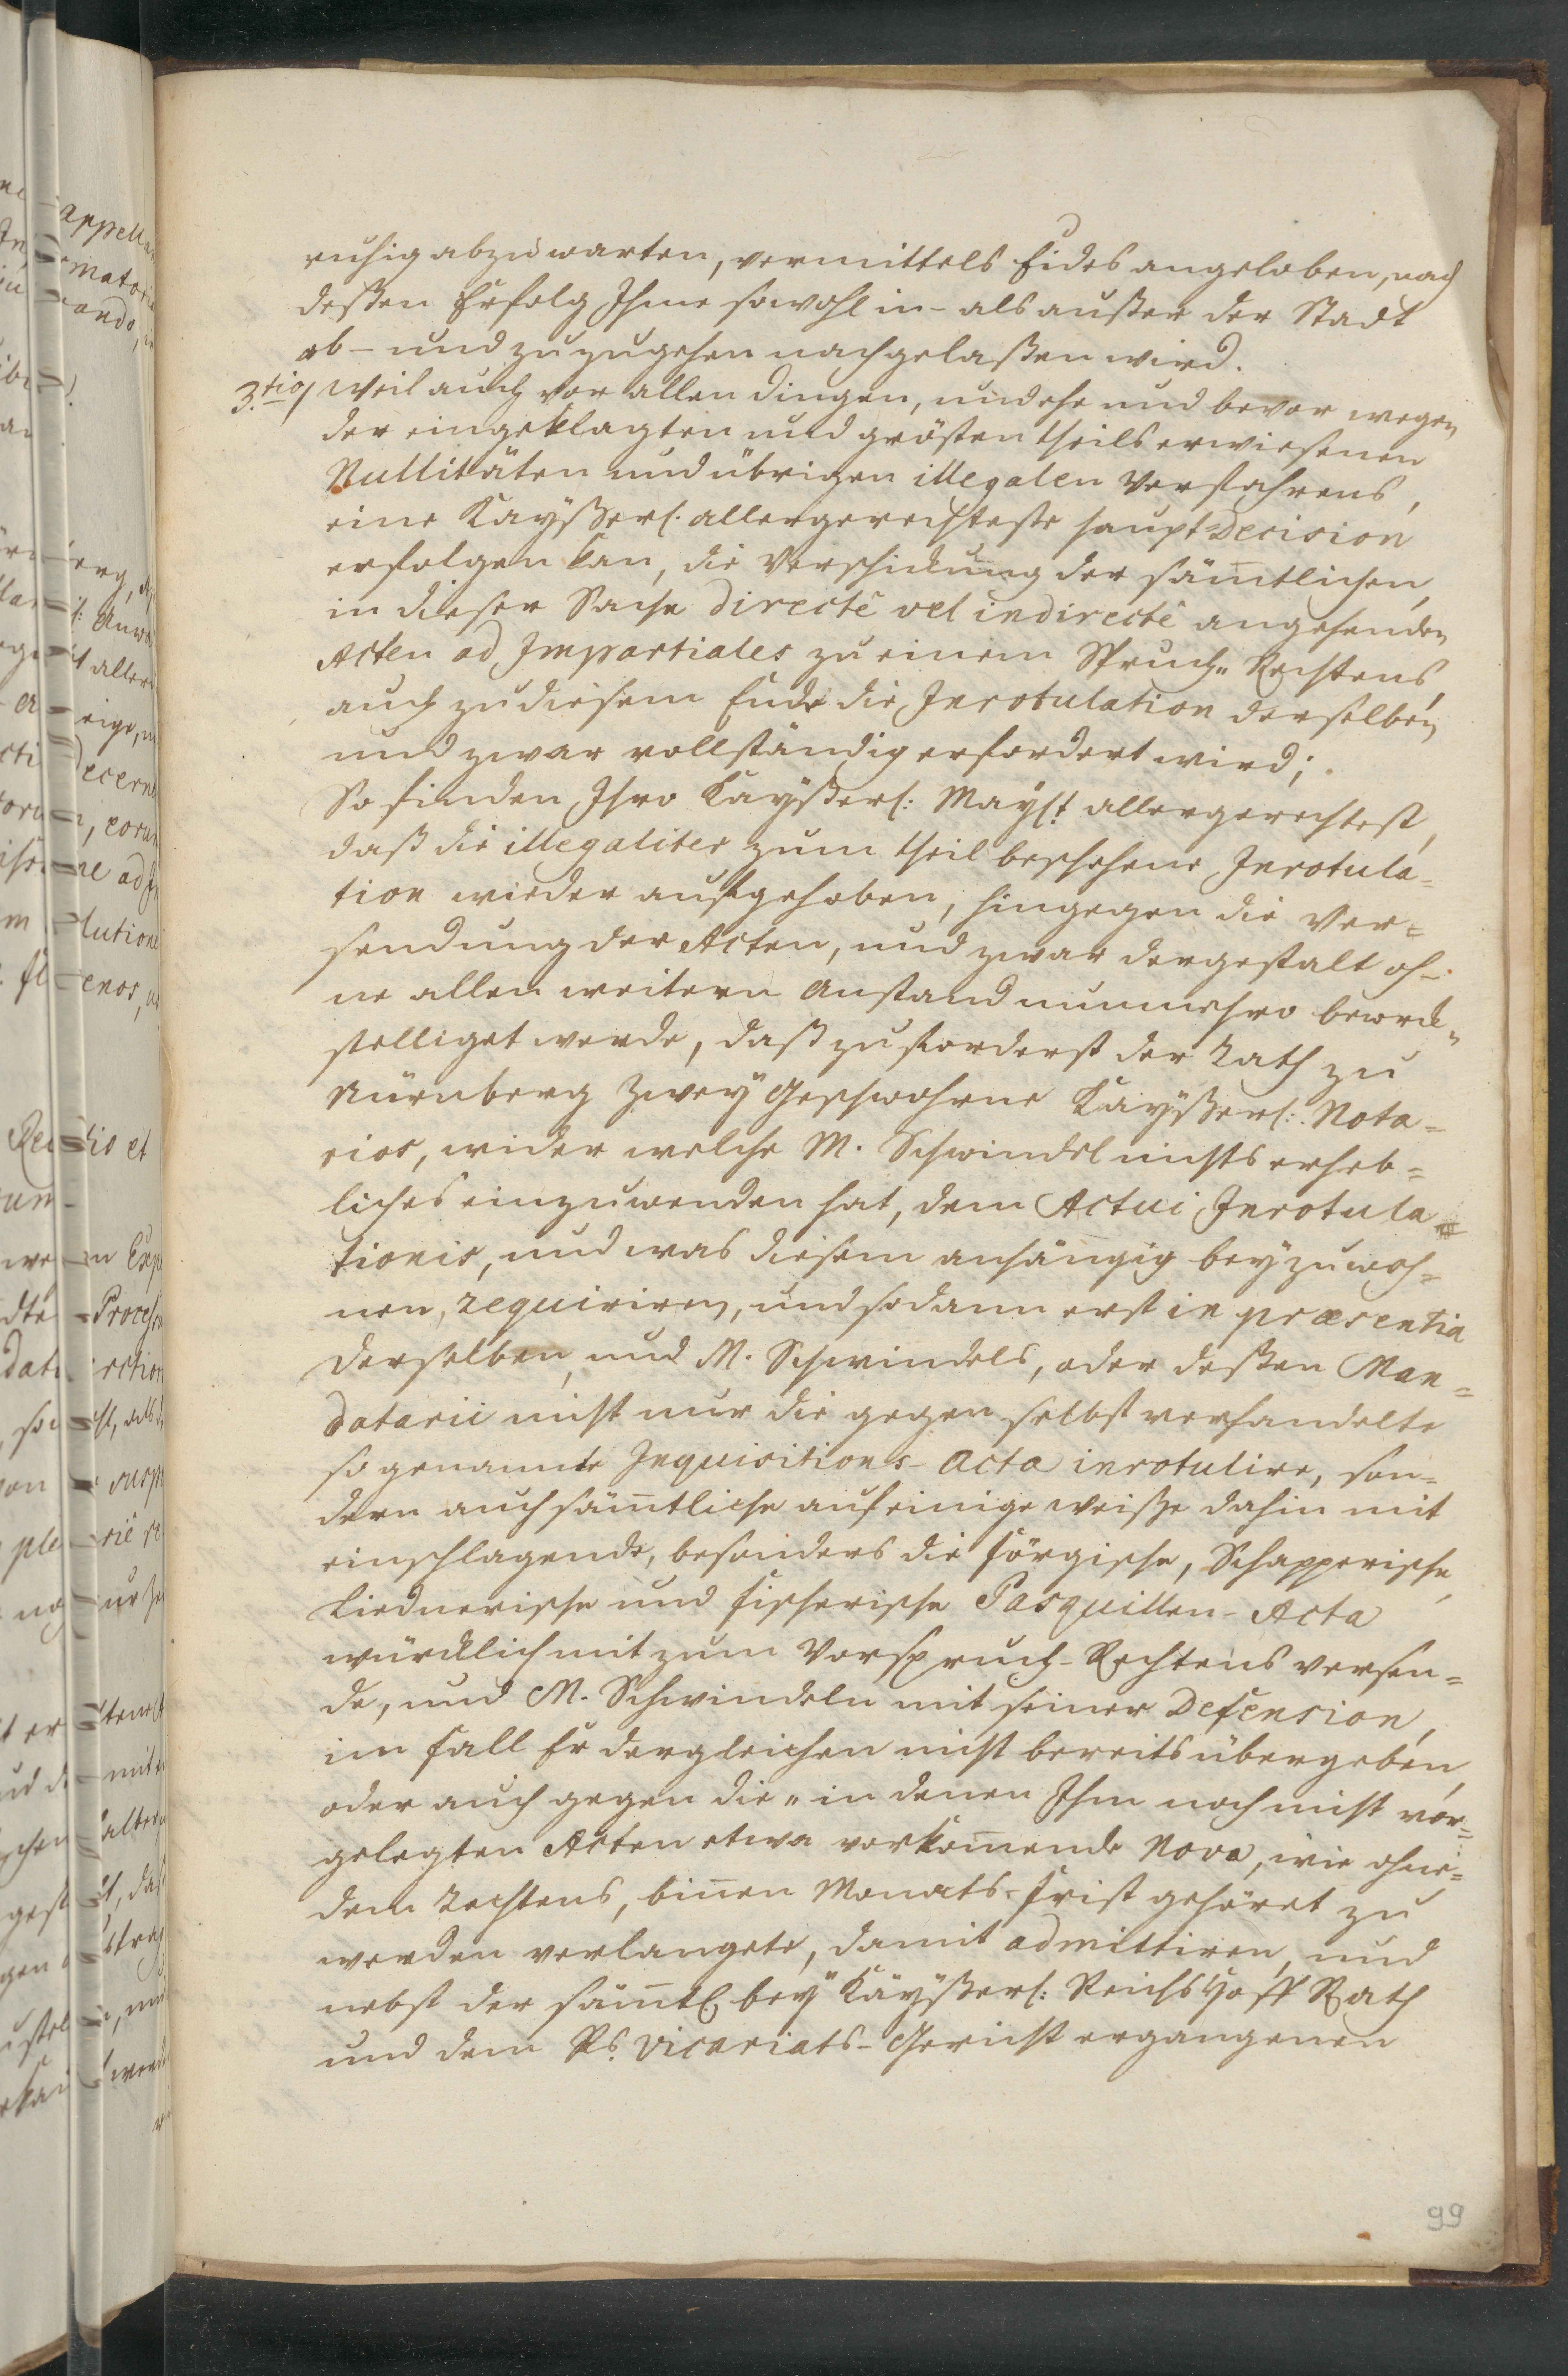 ruhig abzuwarten, vermittels Eides angeloben, nach
deßen Erfolg Ihme sowohl in- als außer der Stadt
ab- und zuzugehen nachgelaßen wird.
3.tio/ Weil auch vor allen dingen, und ehe und bevor wegen
der eingeklagten und grösten theils erwiesenen
Nullitäten und übrigen illegalen Verfahrens,
eine Kayßerl. allergerechteste haupt-Decision
erfolgen kan, die Verschickung der sämtlichen,
in dieser Sache directê vel indirectê angehenden
Acten ad Impartiales zu einem Spruch Rechtens,
auch zu diesem Ende die Inrotulation derselben,
und zwar vollständig erfordert wird;
So finden Ihro Kayßerl: Mayst allergerechtest,
daß die illegaliter zum theil beschehene Inrotula=
tion wieder aufgehoben, hingegen die Ver=
sendung der Acten, und zwar dergestalt oh-
ne allen weitern Anstand nunmehro bewerck=
stelliget werde, daß zuforderst der Rath zu
Nürnberg zwey Geschwohrne Kayßerl: Nota=
rios, wider welche M. Schwindel nichts erheb=
liches einzuwenden hat, dem Actui Inrotula=
tionis, und was diesem anhängig beyzuwoh=
nen, requiriren, und sodann erst in præsentia
derselben, und M. Schwindels, oder deßen Man=
datarii nicht nur die gegen selbst verhandelte
so genannte Inquisitions-Acta inrotulire, son=
dern auch sämtliche auf einige weiße dahin mit
einschlagende, besonders die Försische, Schapperische,
Liednerische und Fischerische Pasquillen-Acta
würcklich mit zum Vorspruch-Rechtens versen=
de, und M. Schwindeln mit seiner Defension,
im fall Er dergleichen nicht bereits übergeben,
oder auch gegen die in denen Ihm noch nicht vor=
gelegten Acten etwa vorkomende Nova, wie ohne=
dem Rechtens, binen Monats-Frist gehöret zu
werden verlangete, damit admittiren, und
nebst der sämtl. bey Kayßerl: Reichs Hoff Rath
und dem Rs. Vicariats-Gericht ergangenen
99